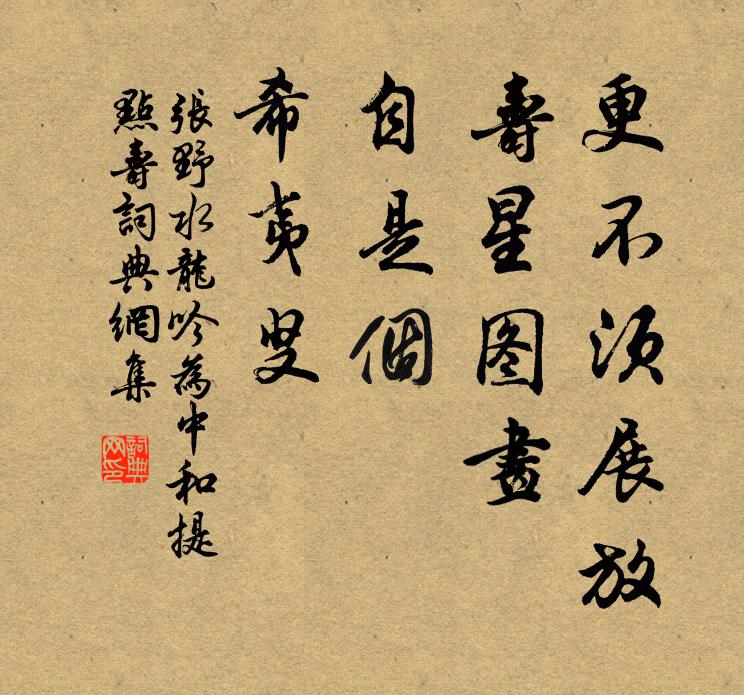 更不須展放
壽星图畫
自是個
希夷叟
張野水龍吟為中和提
點壽詞典網集
詞典網印